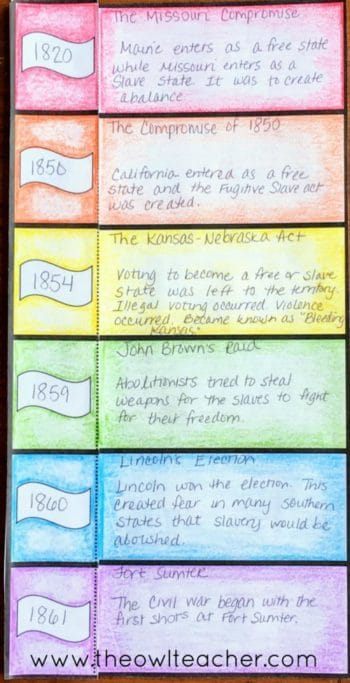 The Missouri Compromise
1820
Maine enters as a free state
while Missouri enters as a
Slave State. It was to create
a balance
The Compromise of 1850
1850
California entered as a free
state and the Fugitive Slave act
was created.
The Kansas-Nebraska Act
1854
Voting to become a free or slave
state was left to the territory.
Illegal voting occurred. Violence
occurred. Became known as "Bleeding
Kansas"
John Brown's Raid
1859
Abolitionists tried to steal
weapons for the slaves to fight
for their freedom.
Lincoln's Election
1860
Lincoln won the election. This
created fear in many southern
states that slavery would be
abolished.
Fort Sumter
1861
The Civil war began with the
first shots at Fort Sumter.
www.theowlteacher.com